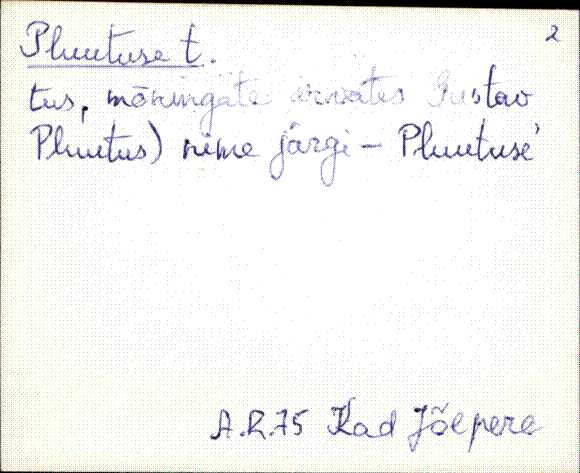 2
Pluutuse t.
tus, mõningate arvates Gustav
Pluutus) nime järgi – Pluutuse'
A.R.75 Kad Jõepere